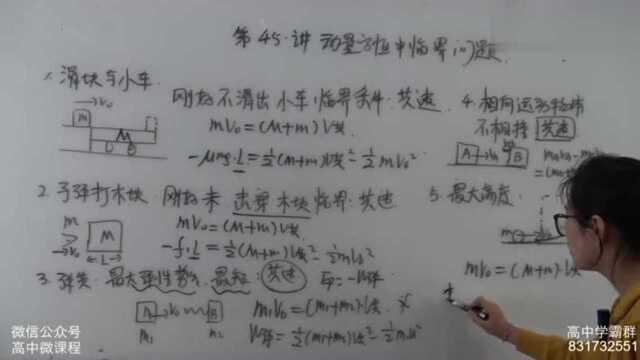 第45讲 动量守恒中临界问题
1. 滑块与小车
刚好不滑出小车:临界条件:共速
m v₀
M
mv₀=(M+m)V共
-μmg·L=½(M+m)V共²-½mv₀²
2. 子弹打木块 刚好未击穿木块 临界:共速
m
→v₀
M
←L→
mv₀=(M+m)V共
-f·L=½(M+m)V共²-½mv₀²
3. 弹簧:最大弹性势能 最短 共速
A →v₀ B
m₁ m₂
m₁v₀=(m₁+m₂)V共
W弹=½(m₁+m₂)V共²-½m₁v₀²
4. 相向运动物体
不相撞 共速
A B
5. 最大高度
mv₀=(M+m)·V共
微信公众号
高中微课程
高中学霸群
831732551